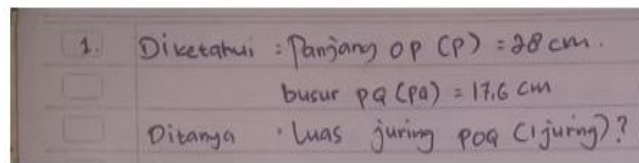 1. Diketahui : Panjang OP (P) = 28 cm.
busur PQ (PQ) = 17,6 cm
Ditanya : Luas juring POQ (1 juring)?